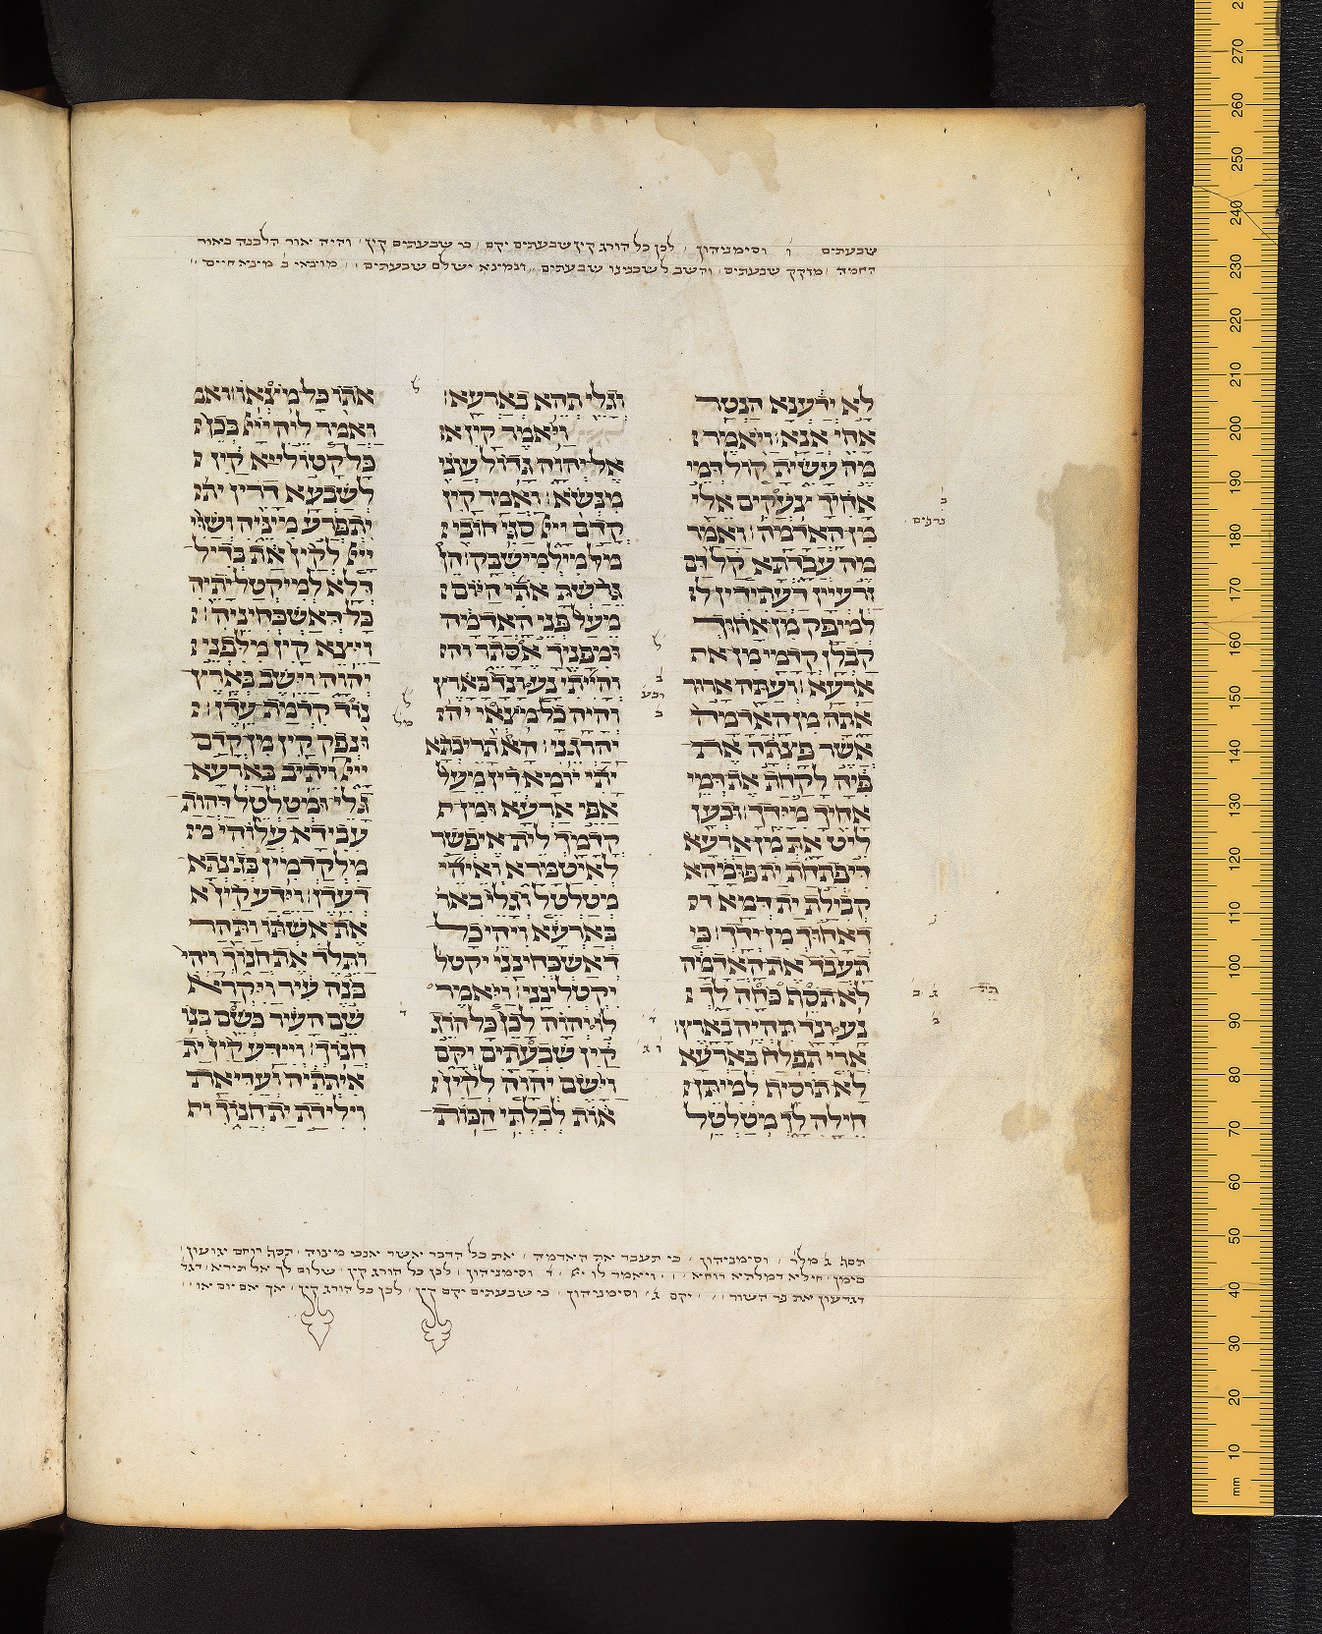 שבעתים ו׳ וסימניהון לכן כל הורג קין שבעתים יקם כי שבעתים קין והיה אור הלבנה כאור
החמה מזקק שבעתים והשב לשכנינו שבעתים ונמצא ישלם שבעתים
לא ידענא הנטר
אחי אנא ויאמר
מה עשית קול דמי
אחיך צעקים אלי
מן האדמה ואמר
מה עבדתא קל דם
זרעיין דעתידין ל
למיפק מן אחוך
קבלן קדמי מן את
ארעא ועתה ארור
אתה מן האדמה
אשר פצתה את
פיה לקחת את דמי
אחיך מידך וכען
ליט את מן ארעא
דיפתחת ית פומהא
קבילת ית דמא ד
דאחוך מן ידך כי
תעבד את האדמה
לא תסף כחה לך
נע ונד תהיה בארץ
ארי תפלח בארעא
לא תוסיף למיתן
חילה לך מטלטל
וגלי תהא בארעא
ויאמר קין א
אל יהוה גדול עוני
מנשא ואמר קין
קדם ייי סגי חובי
מלמישבק הן
גרשת אתי היום
מעל פני האדמה
ומפניך אסתר וה
והייתי נע ונד בארץ
והיה כל מצאי יה
יהרגני הא תריכתא
יתי יומא דין מעל
אפי ארעא ומן
קדמך לית איפשר
לאיטמרא ואיהי
מטלטל וגלי באר
בארעא ויהי כל
דאשכחינני יקטל
יקטלינני ויאמר
לו יהוה לכן כל הרג
קין שבעתים יקם
וישם יהוה לקין
אות לבלתי הכות
אתו כל מצאו ואמ
ואמר ליה ייי בכן
כל קטוליא קין
לשבעא דרין ית
יתפרע מיניה ושוי
ייי לקין את בדיל
דלא למיקטל יתיה
כל דאשכחיניה
ויצא קין מלפני
יהוה וישב בארץ
נוד קדמת עדן
ונפק קין מן קדם
ייי ויתיב בארעא
גלי ומטלטל דהות
עבידא עלוהי מ
מלקדמין בגנתא
דעדן וידע קין א
את אשתו ותהר
ותלד את חנוך ויהי
בנה עיר ויקרא
שם העיר כשם בנו
חנוך וידע קין ית
איתתיה ועדיאת
וילידת ית חנוך וה
תסף ג מל׳ וסימניהון כי תעבד את האדמה את כל הדבר אשר אנכי מצוה
סימן חילא דמלתא רוחא ויאמר לו יי ד וסימניהון לכן כל הורג קין שלום לך אל תירא דגד
דגדעון את פר השור יקם ג׳ וסימניהון כי שבעתים יקם קין לכן כל הורג קין אך אם יום או